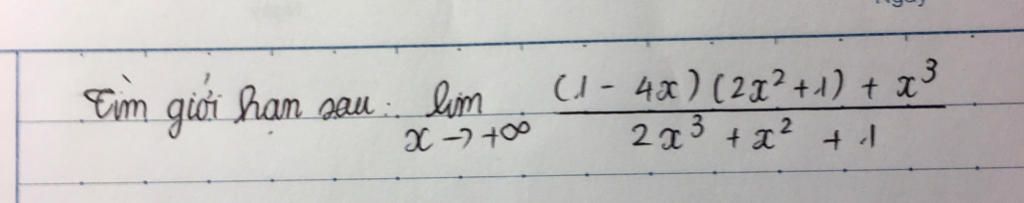 Tìm giới hạn sau: lim x→+∞ (1 - 4x)(2x²+1) + x³ / 2x³ + x² + 1